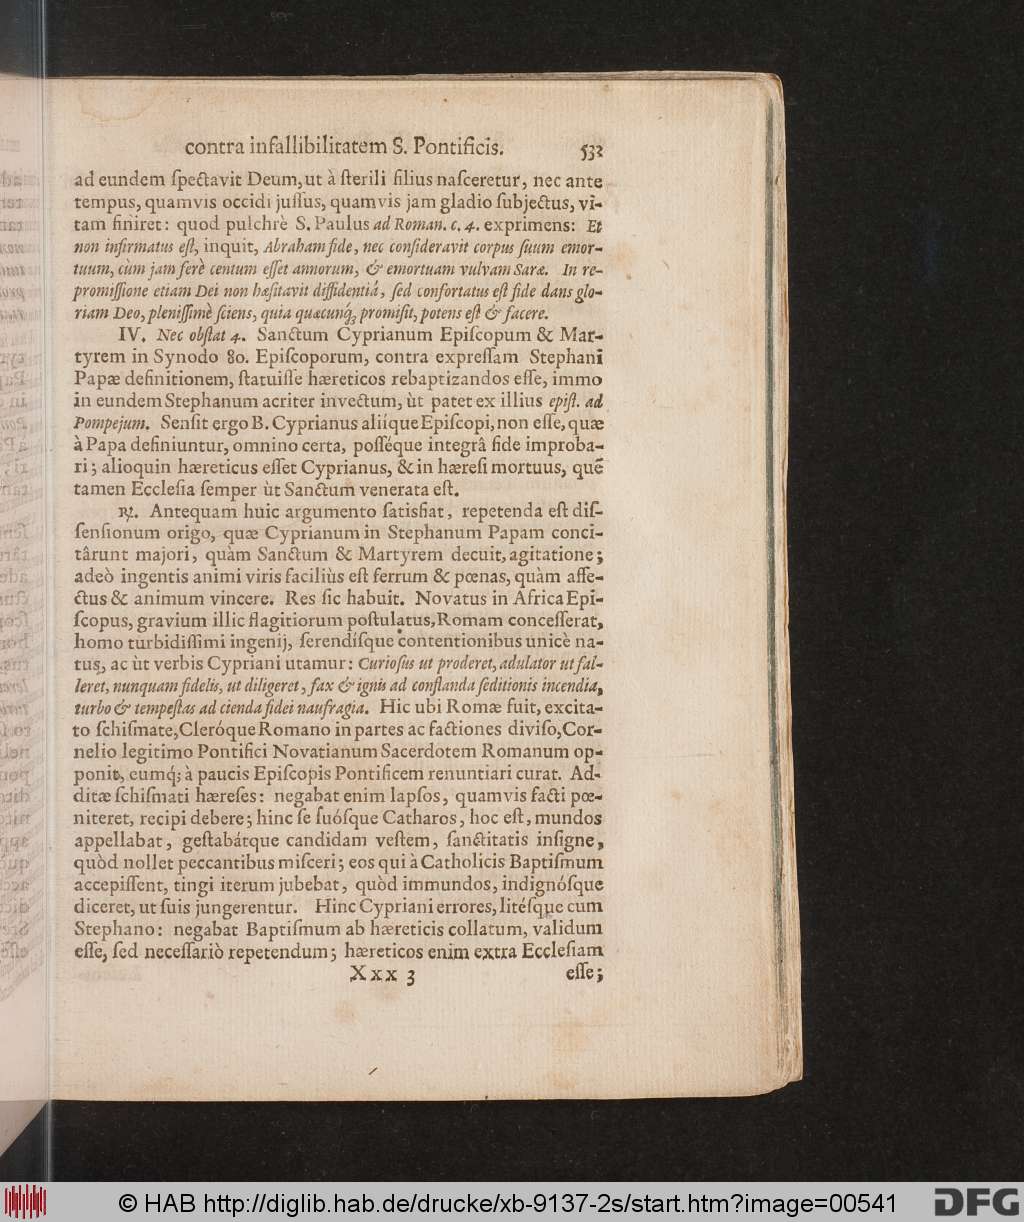 contra infallibilitatem S. Pontificis. 533
ad eundem ſpectavit Deum, ut à ſterili filius naſceretur, nec ante
tempus, quamvis occidi juſſus, quamvis jam gladio ſubjectus, vi-
tam finiret: quod pulchrè S. Paulus ad Roman. c. 4. exprimens: Et
non infirmatus eſt, inquit, Abraham fide, nec conſideravit corpus ſuum emor-
tuum, cùm jam ferè centum eſſet annorum, & emortuam vulvam Saræ. In re-
promiſſione etiam Dei non hæſitavit diffidentiâ, ſed confortatus eſt fide dans glo-
riam Deo, pleniſſimè ſciens, quia quæcunq́; promiſit, potens eſt & facere.
IV. Nec obſtat 4. Sanctum Cyprianum Epiſcopum & Mar-
tyrem in Synodo 80. Epiſcoporum, contra expreſſam Stephani
Papæ definitionem, ſtatuiſſe hæreticos rebaptizandos eſſe, immo
in eundem Stephanum acriter invectum, ùt patet ex illius epiſt. ad
Pompejum. Senſit ergo B. Cyprianus aliíque Epiſcopi, non eſſe, quæ
à Papa definiuntur, omnino certa, poſſéque integrâ fide improba-
ri; alioquin hæreticus eſſet Cyprianus, & in hæreſi mortuus, quē
tamen Eccleſia ſemper ùt Sanctum venerata eſt.
℞. Antequam huic argumento ſatisfiat, repetenda eſt diſ-
ſenſionum origo, quæ Cyprianum in Stephanum Papam conci-
târunt majori, quàm Sanctum & Martyrem decuit, agitatione;
adeò ingentis animi viris faciliùs eſt ferrum & pœnas, quàm affe-
ctus & animum vincere. Res ſic habuit. Novatus in Africa Epi-
ſcopus, gravium illic flagitiorum poſtulatus, Romam conceſſerat,
homo turbidiſſimi ingenij, ferendíſque contentionibus unicè na-
tus, ac ùt verbis Cypriani utamur: Curioſus ut proderet, adulator ut fal-
leret, nunquam fidelis, ut diligeret, fax & ignis ad conflanda ſeditionis incendia,
turbo & tempeſtas ad cienda fidei naufragia. Hic ubi Romæ fuit, excita-
to ſchiſmate, Cleróque Romano in partes ac factiones diviſo, Cor-
nelio legitimo Pontifici Novatianum Sacerdotem Romanum op-
ponit, eumq́; à paucis Epiſcopis Pontificem renuntiari curat. Ad-
ditæ ſchiſmati hæreſes: negabat enim lapſos, quamvis facti pœ-
niteret, recipi debere; hinc ſe ſuóſque Catharos, hoc eſt, mundos
appellabat, geſtabátque candidam veſtem, ſanctitatis inſigne,
quòd nollet peccantibus miſceri; eos qui à Catholicis Baptiſmum
accepiſſent, tingi iterum jubebat, quòd immundos, indignóſque
diceret, ut ſuis jungerentur. Hinc Cypriani errores, litéſque cum
Stephano: negabat Baptiſmum ab hæreticis collatum, validum
eſſe, ſed neceſſariò repetendum; hæreticos enim extra Eccleſiam
Xxx 3 eſſe;
© HAB http://diglib.hab.de/drucke/xb-9137-2s/start.htm?image=00541 DFG